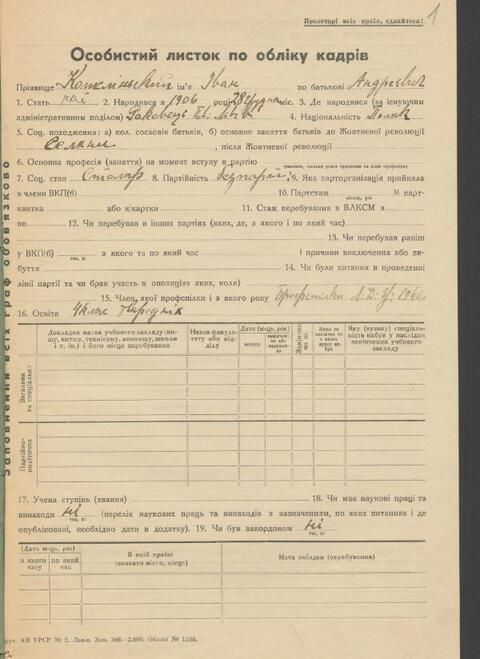 Пролетарі всіх країн, єднайтеся!
1
Особистий листок по обліку кадрів
Прізвище ім'я Іван по батькові Андреевич
1. Стать чол. 2. Народився в 1906 28 Грудня міс. 3. Де народився (за існуючим
адміністративним поділом) 4. Національність Поляк
5. Соц. походження: а) кол. сословіє батьків, б) основне заняття батьків до Жовтневої революції
Селяни , після Жовтневої революції
6. Основна професія (заняття) на момент вступу в партію
7. Соц. стан Столяр 8. Партійність 9. Яка парторганізація прийняла
в члени ВКП(б) 10. Партстаж місяць, рік № парт-
квитка або к/картки 11. Стаж перебування в ВЛКСМ з
по 12. Чи перебував в інших партіях (яких, де, з якого і по який час)
13. Чи перебував раніш
у ВКП(б) з якого та по який час і причини виключення або ви-
буття 14. Чи були хитання в проведенні
лінії партії та чи брав участь в опозиціях яких, коли)
15. Член, якої профспілки і з якого року 1940
16. Освіта 4 клас
Докладна назва учбового закладу (ви-
шу, втишу, технікуму, комвишу, школи
і т. ін.) і його місце перебування
Назва факуль-
тету або від-
ділу
Дата (м-ць, рік)
вступу
Закінчив
чи ні
Яку (вузьку) спеціаль-
ність набув у наслідок
закінчення учбового
закладу
Загальна
та спеціальна
Партійно-
політична
Заповнення всіх граф обов'язково
17. Учена ступінь (звання) 18. Чи має наукові праці та
винаходи ні (перелік наукових праць та винаходів з зазначенням, по яких питаннях і де
так, ні
опубліковані, необхідно дати в додатку). 19. Чи був закордоном ні
так, ні
(Дата м-ць, рік)
з якого
часу
по який
час
В якій країні
(вказати місто, місце)
Мета поїздки (перебування)
друк. АН УРСР № 2. Львів. Зам. 368—2.000. Обліт № 1186.